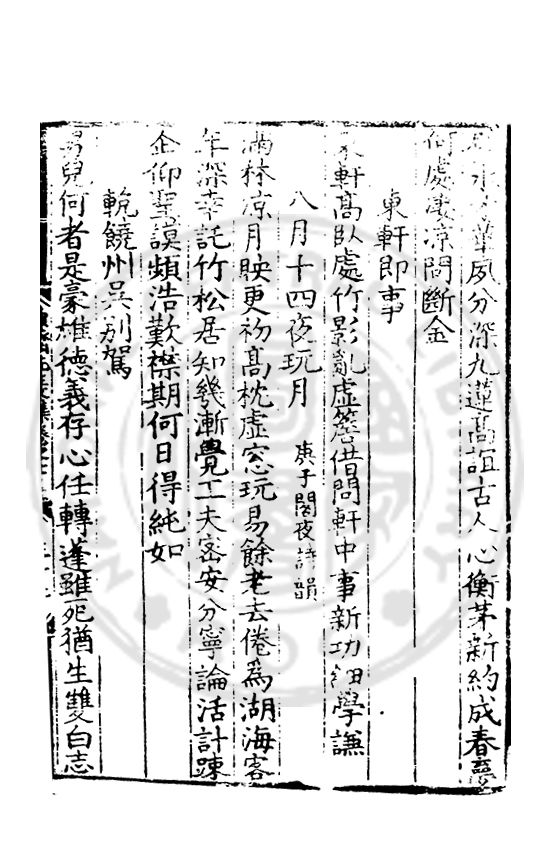 水華夙分深九蓮高誼古人心衡茅新約成春
何處淒涼問斷金
東軒即事
東軒高臥處竹影亂虛簷借問軒中事新功細學謙
八月十四夜玩月 庚子閣夜詩韻
滿林凉月映更初高枕虛窓玩易餘老去倦為湖海客
年深幸託竹松居知幾漸覺工夫密安分寧論活計踈
企仰聖謨頻浩歎襟期何日得純如
輓饒州吳別駕
男兒何者是豪雄德義存心任轉蓬雖死猶生雙白志